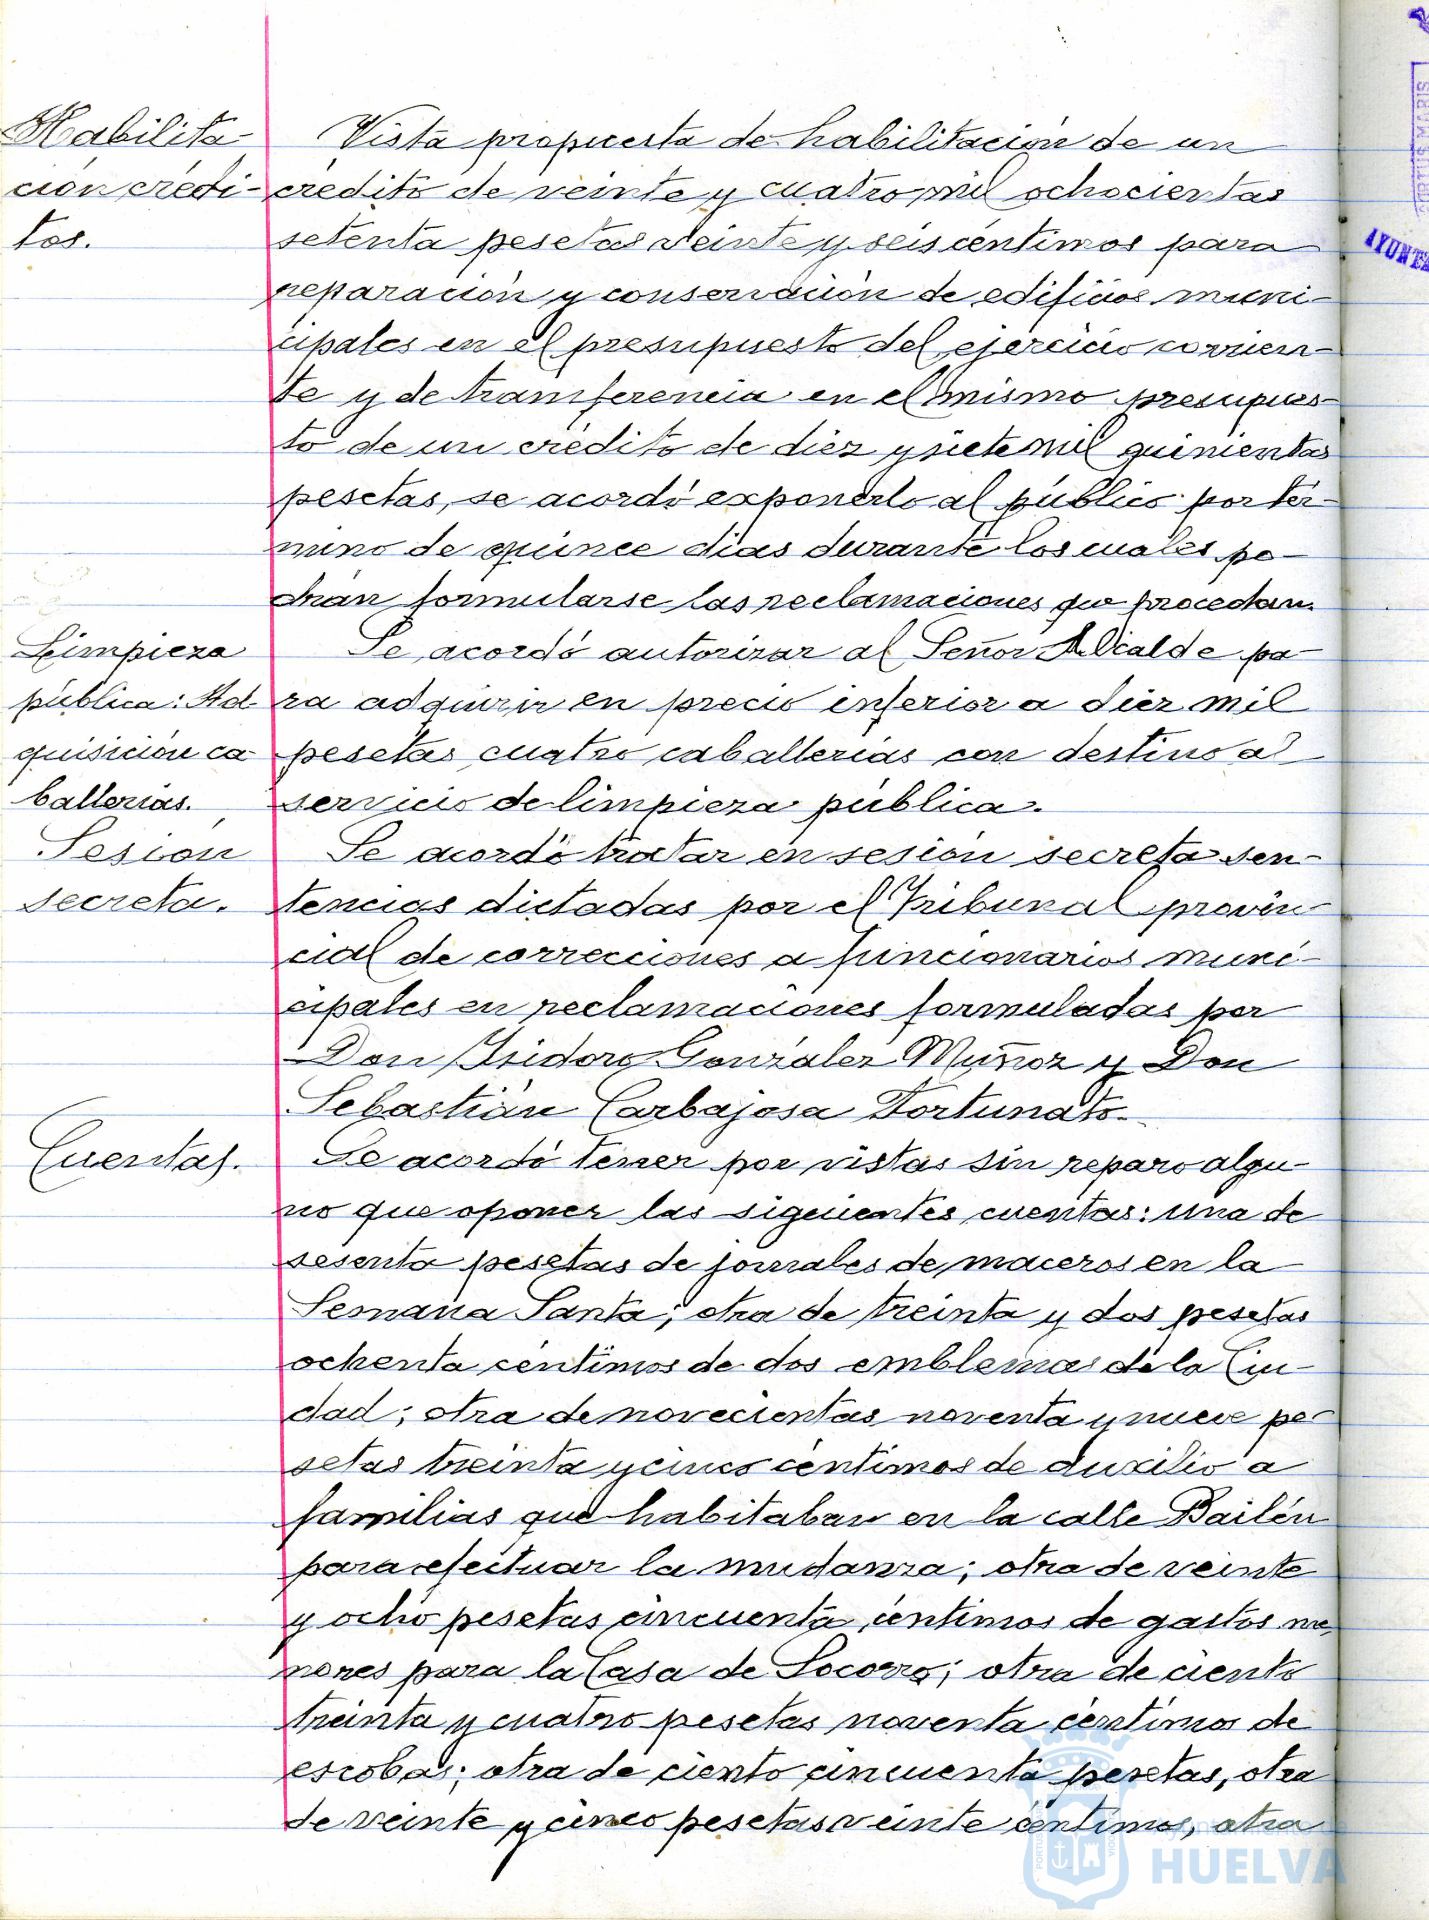 Habilita-
ción crédi-
tos.
Vista propuesta de habilitación de un
crédito de veinte y cuatro mil ochocientas
setenta pesetas veinte y seis céntimos para
reparación y conservación de edificios muni-
cipales en el presupuesto del ejercicio corrien-
te y de transferencia en el mismo presupues-
to de un crédito de diez y siete mil quinientas
pesetas, se acordó exponerlo al público por tér-
mino de quince dias durante los cuales po-
drán formularse las reclamaciones que procedan.
Limpieza
pública: Ad-
quisición ca-
ballerías.
Se acordó autorizar al Señor Alcalde pa-
ra adquirir en precio inferior a diez mil
pesetas cuatro caballerías con destino al
servicio de limpieza pública.
Sesión
secreta.
Se acordó tratar en sesión secreta sen-
tencias dictadas por el Tribunal provin-
cial de correcciones a funcionarios muni-
cipales en reclamaciones formuladas por
Don Isidoro González Muñoz y Don
Sebastián Carbajosa Fortunato.
Cuentas.
Se acordó tener por vistas sin reparo algu-
no que oponer las siguientes cuentas: una de
sesenta pesetas de jornales de maceros en la
Semana Santa; otra de treinta y dos pesetas
ochenta céntimos de dos emblemas de la Ciu-
dad; otra de novecientas noventa y nueve pe-
setas treinta y cinco céntimos de auxilio a
familias que habitaban en la calle Bailén
para efectuar la mudanza; otra de veinte
y ocho pesetas cincuenta céntimos de gastos me-
nores para la Casa de Socorro; otra de ciento
treinta y cuatro pesetas noventa céntimos de
escobas; otra de ciento cincuenta pesetas, otra
de veinte y cinco pesetas veinte céntimos, otra
PORTUS MARIS
AYUNTA
Ayuntamiento de
HUELVA